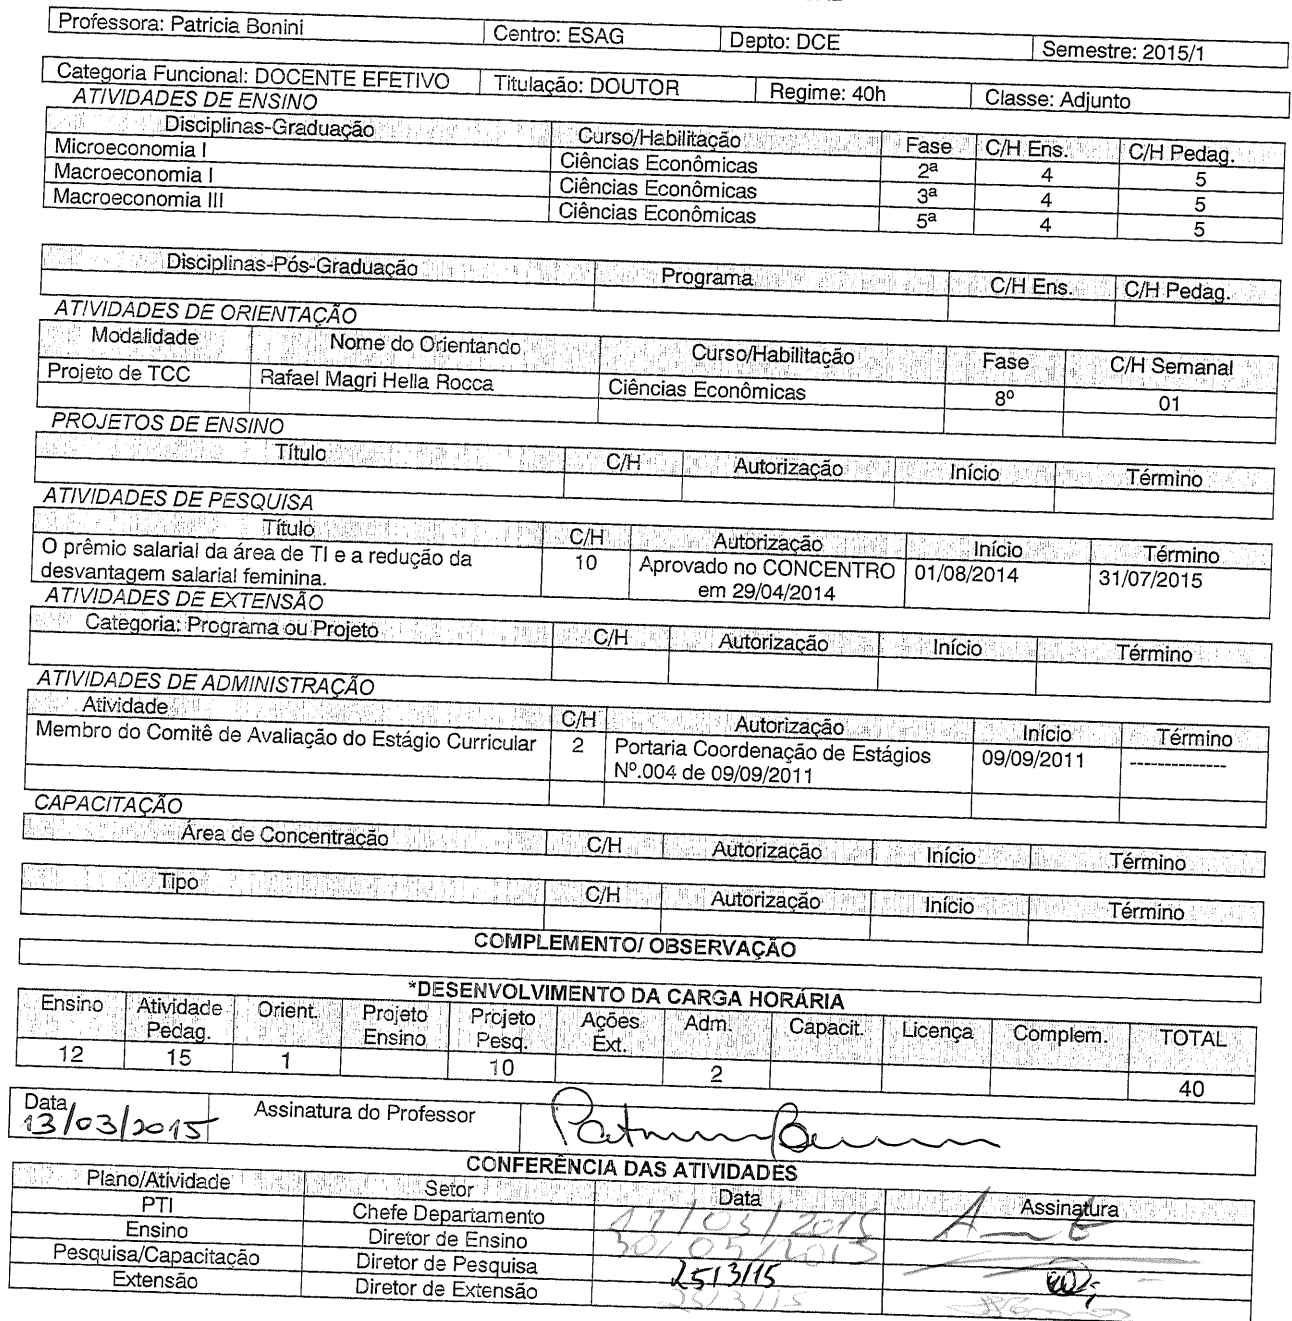 Professora: Patricia Bonini Centro: ESAG Depto: DCE Semestre: 2015/1
Categoria Funcional: DOCENTE EFETIVO Titulação: DOUTOR Regime: 40h Classe: Adjunto
ATIVIDADES DE ENSINO
Disciplinas-Graduação Curso/Habilitação Fase C/H Ens. C/H Pedag.
Microeconomia I Ciências Econômicas 2ª 4 5
Macroeconomia I Ciências Econômicas 3ª 4 5
Macroeconomia III Ciências Econômicas 5ª 4 5
Disciplinas-Pós-Graduação Programa C/H Ens. C/H Pedag.
ATIVIDADES DE ORIENTAÇÃO
Modalidade Nome do Orientando Curso/Habilitação Fase C/H Semanal
Projeto de TCC Rafael Magri Hella Rocca Ciências Econômicas 8º 01
PROJETOS DE ENSINO
Título C/H Autorização Início Término
ATIVIDADES DE PESQUISA
Título C/H Autorização Início Término
O prêmio salarial da área de TI e a redução da 10 Aprovado no CONCENTRO 01/08/2014 31/07/2015
desvantagem salarial feminina. em 29/04/2014
ATIVIDADES DE EXTENSÃO
Categoria: Programa ou Projeto C/H Autorização Início Término
ATIVIDADES DE ADMINISTRAÇÃO
Atividade C/H Autorização Início Término
Membro do Comitê de Avaliação do Estágio Curricular 2 Portaria Coordenação de Estágios 09/09/2011 --------------
Nº.004 de 09/09/2011
CAPACITAÇÃO
Área de Concentração C/H Autorização Início Término
Tipo C/H Autorização Início Término
COMPLEMENTO/ OBSERVAÇÃO
*DESENVOLVIMENTO DA CARGA HORÁRIA
Ensino Atividade Orient. Projeto Projeto Ações Adm. Capacit. Licença Complem. TOTAL
Pedag. Ensino Pesq. Ext.
12 15 1 10 2 40
Data Assinatura do Professor
13/03/2015 Patricia Bonini
CONFERÊNCIA DAS ATIVIDADES
Plano/Atividade Setor Data Assinatura
PTI Chefe Departamento 17/03/2015
Ensino Diretor de Ensino
Pesquisa/Capacitação Diretor de Pesquisa 25/3/15
Extensão Diretor de Extensão